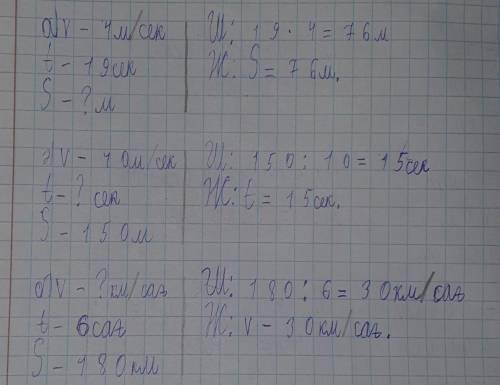 а) v - 4м/сек
t - 19сек
S - ? м
Ш: 19 · 4 = 76м
Ж: S = 76м.
ә) v - 10м/сек
t - ? сек
S - 150м
Ш: 150 : 10 = 15сек
Ж: t = 15сек.
б) v - ? км/сағ
t - 6сағ
S - 180км
Ш: 180 : 6 = 30км/сағ
Ж: v - 30км/сағ.